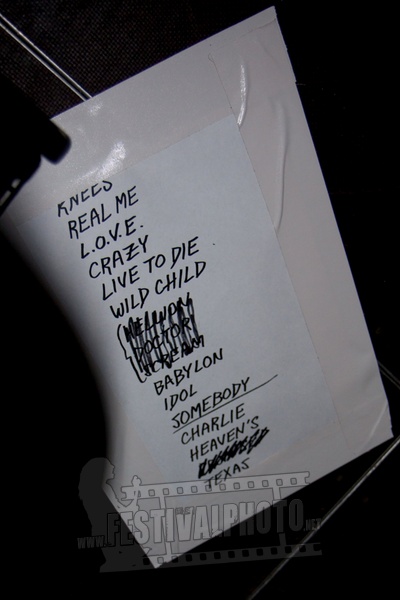 KNEES
REAL ME
L.O.V.E.
CRAZY
LIVE TO DIE
WILD CHILD
HELLION
DOCTOR
SCREAM
BABYLON
IDOL
SOMEBODY
CHARLIE
HEAVEN'S
TEXAS
WWW.FESTIVALPHOTO.NET